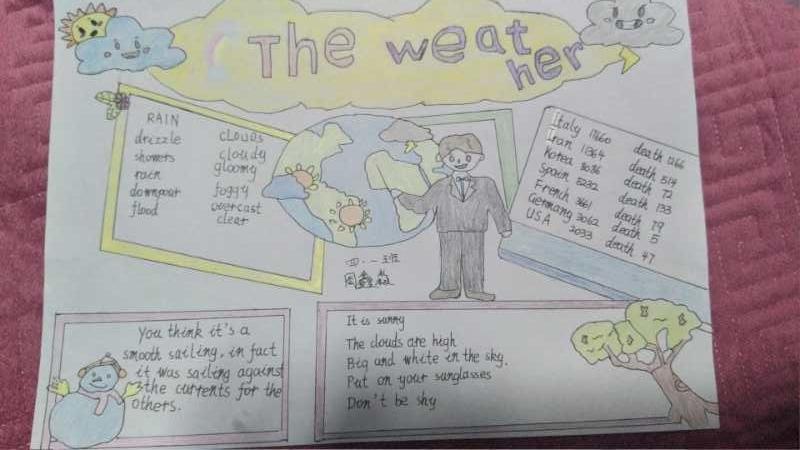 The weat
her
RAIN
drizzle
showers
rain
downpour
flood
CLOUDS
cloudy
gloomy
foggy
overcast
clear
Italy 17660 death 1266
Iran 11364 death 514
Korea 8086 death 72
Spain 5232 death 133
French 3661 death 79
Germany 3062 death 5
USA 3033 death 47
四.一班
You think it's a
smooth sailing, in fact
it was sailing against
the currents for the
others.
It is sunny
The clouds are high
Big and white in the sky.
Put on your sunglasses
Don't be shy